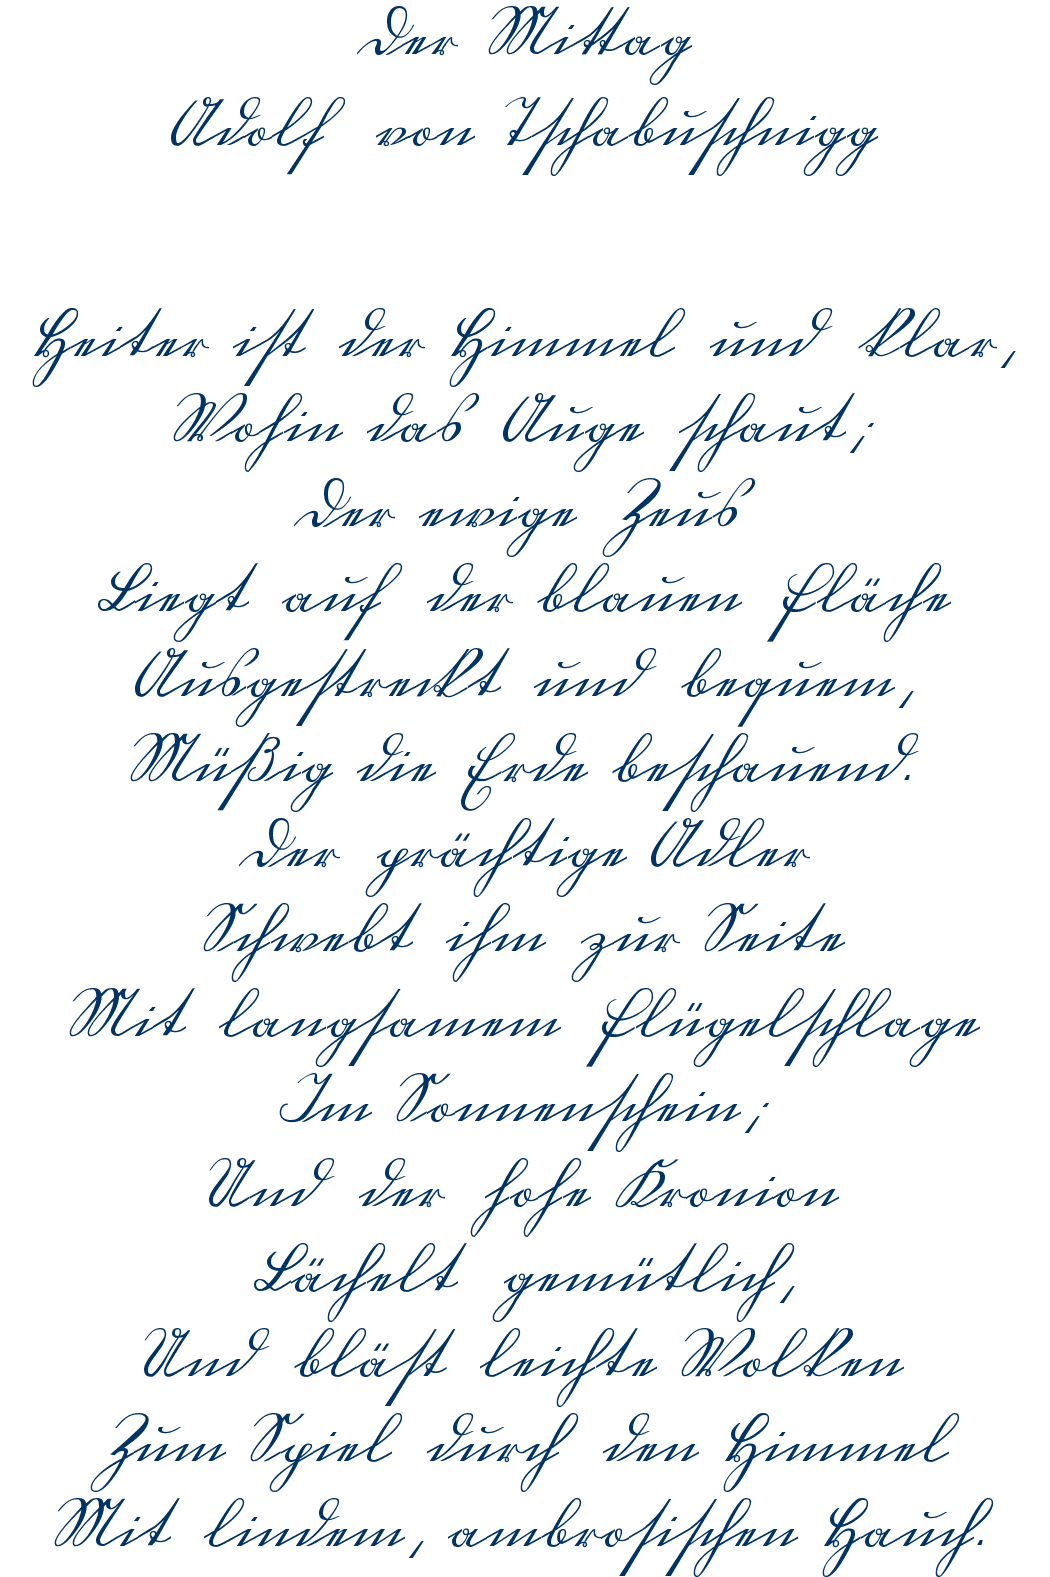 Der Mittag
Adolf von Tschabuschnigg
Heiter ist der Himmel und klar,
Wohin das Auge schaut;
Der ewige Zeus
Liegt auf der blauen Fläche
Ausgestreckt und bequem,
Müßig die Erde beschauend.
Der prächtige Adler
Schwebt ihm zur Seite
Mit langsamem Flügelschlage
Im Sonnenschein;
Und der hohe Kronion
Lächelt gemütlich,
Und bläst leichte Wolken
Zum Spiel durch den Himmel
Mit lindem, ambrosischen Hauch.